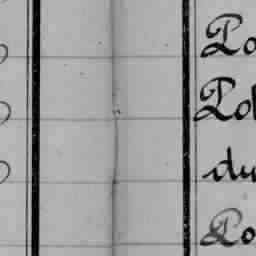 Po
Pol
du
Po